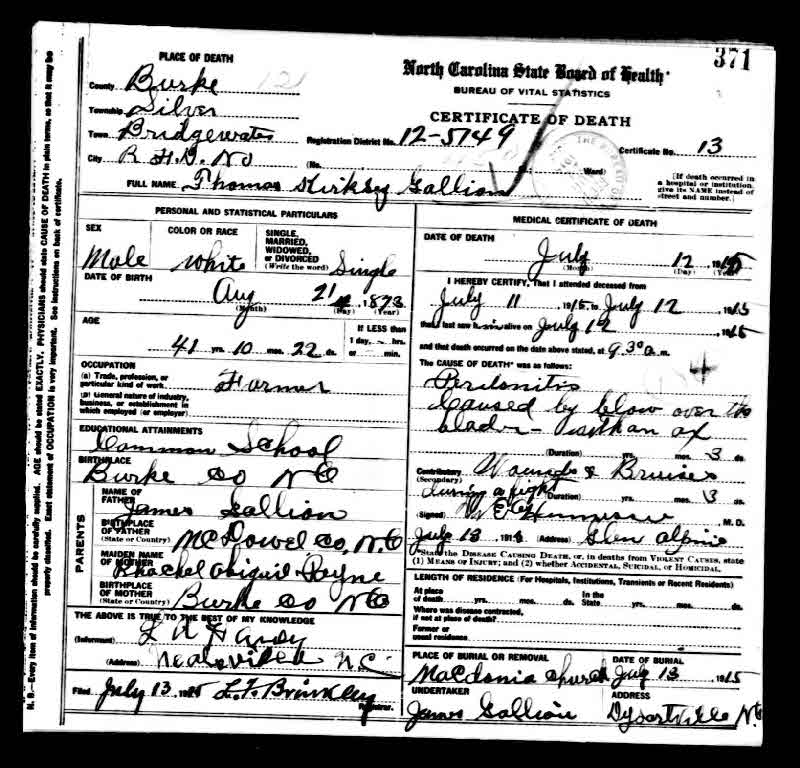 371
PLACE OF DEATH
North Carolina State Board of Health
BUREAU OF VITAL STATISTICS
CERTIFICATE OF DEATH
County Burke 121
Township Silver
Town Bridgewater
Registration District No. 12-5749
Certificate No. 13
City R.F.D. No (No. St.; Ward)
[If death occurred in a hospital or institution, give its NAME instead of street and number.]
FULL NAME Thomas Kirksey Gallion
PERSONAL AND STATISTICAL PARTICULARS
SEX
Male
COLOR OR RACE
White
SINGLE, MARRIED, WIDOWED, or DIVORCED (Write the word) Single
DATE OF BIRTH
Aug 21, 1873
(Month) (Day) (Year)
AGE
41 yrs. 10 mos. 22 ds.
If LESS than 1 day, hrs. or min.
OCCUPATION
(a) Trade, profession, or particular kind of work Farmer
(b) General nature of industry, business, or establishment in which employed (or employer)
EDUCATIONAL ATTAINMENTS
Common School
BIRTHPLACE
Burke Co N C
PARENTS
NAME OF FATHER
James Gallion
BIRTHPLACE OF FATHER (State or Country) McDowel Co, N.C
MAIDEN NAME OF MOTHER
Rhachel Abigail Payne
BIRTHPLACE OF MOTHER (State or Country) Burke Co N C
THE ABOVE IS TRUE TO THE BEST OF MY KNOWLEDGE
(Informant)
(Address) N.C.
Filed July 13 1915 L.F. Brinkley Registrar.
MEDICAL CERTIFICATE OF DEATH
DATE OF DEATH
July 12 1915
(Month) (Day) (Year)
I HEREBY CERTIFY, That I attended deceased from
July 11 1915, to July 12 1915
that I last saw him alive on July 12 1915
and that death occurred on the date above stated, at 9 30 a m.
The CAUSE OF DEATH* was as follows:
Peritonitis
Caused by blow over the
blader - with an ax
(Duration) yrs. mos. 3 ds.
Contributory (Secondary) Wounds & Bruises
during a fight (Duration) yrs. mos. 3 ds.
(Signed) M. D.
July 13 191 (Address) Glen Alpine
*State the DISEASE CAUSING DEATH, or, in deaths from VIOLENT CAUSES, state
(1) MEANS OF INJURY; and (2) whether ACCIDENTAL, SUICIDAL, or HOMICIDAL.
LENGTH OF RESIDENCE (For Hospitals, Institutions, Transients or Recent Residents)
At place of death yrs. mos. ds. In the State yrs. mos. ds.
Where was disease contracted, if not at place of death?
Former or usual residence
PLACE OF BURIAL OR REMOVAL
Macdonia Church
DATE OF BURIAL
July 13 1915
UNDERTAKER
James Gallion
ADDRESS
Dysartville N.C
N. B.—Every item of information should be carefully supplied. AGE should be stated EXACTLY. PHYSICIANS should state CAUSE OF DEATH in plain terms, so that it may be
properly classified. Exact statement of OCCUPATION is very important. See instructions on back of certificate.